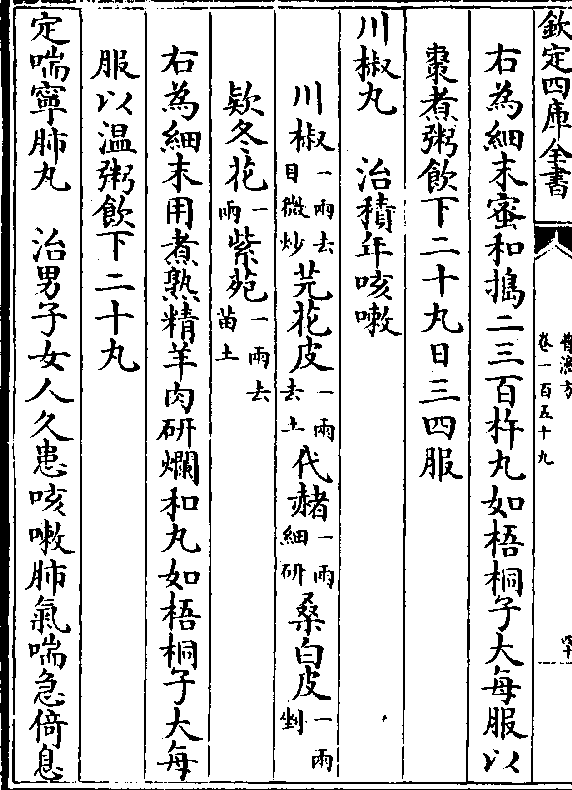 欽定四庫全書
普濟方
卷一百五十九
右為細末蜜和搗二三百杵丸如梧桐子大每服以
棗煮粥飲下二十丸日三四服
川椒丸　治積年咳嗽
川椒一兩去目微炒芫花皮一兩去土代赭一兩細研桑白皮一兩剉
欵冬花一兩紫苑一兩去苗土
右為細末用煮熟精羊肉研爛和丸如梧桐子大每
服以温粥飲下二十丸
定喘寧肺丸　治男子女人久患咳嗽肺氣喘急倚息